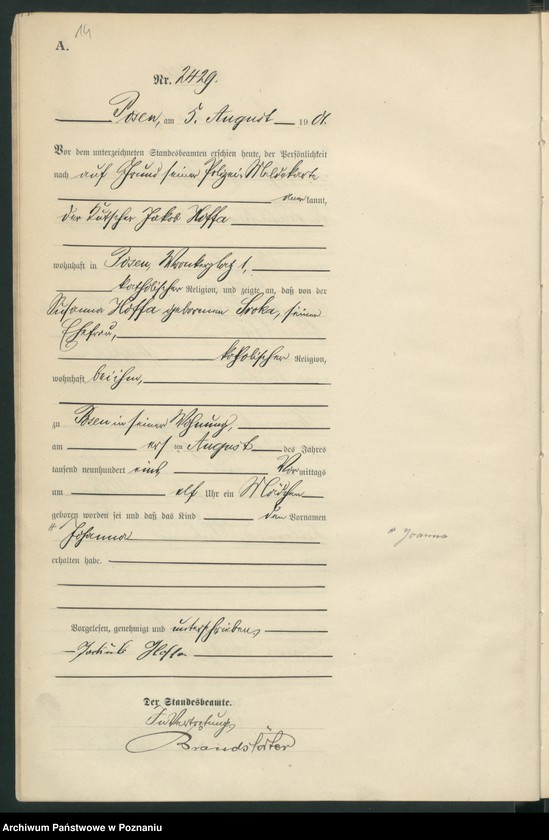 14
A.
Nr. 2429.
Posen, am 5. August 1901.
Vor dem unterzeichneten Standesbeamten erschien heute, der Persönlichkeit
nach auf Grund seiner Polizei-Meldekarte
kannt,
der Kutscher Jakob Hoffa
wohnhaft in Posen, Wronkerplatz 1,
katholischer Religion, und zeigte an, daß von der
Susanna Hoffa geborenen Sroka, seiner
Ehefrau,
katholischer Religion,
wohnhaft bei ihm,
zu Posen in seiner Wohnung,
am ersten August des Jahres
tausend neunhundert eins Vormittags
um elf Uhr ein Mädchen
geboren worden sei und daß das Kind den Vornamen
Johanna
erhalten habe.
Joanna
Vorgelesen, genehmigt und unterschrieben
Hoffa
Der Standesbeamte.
In Vertretung
Brandstäter
Archiwum Państwowe w Poznaniu